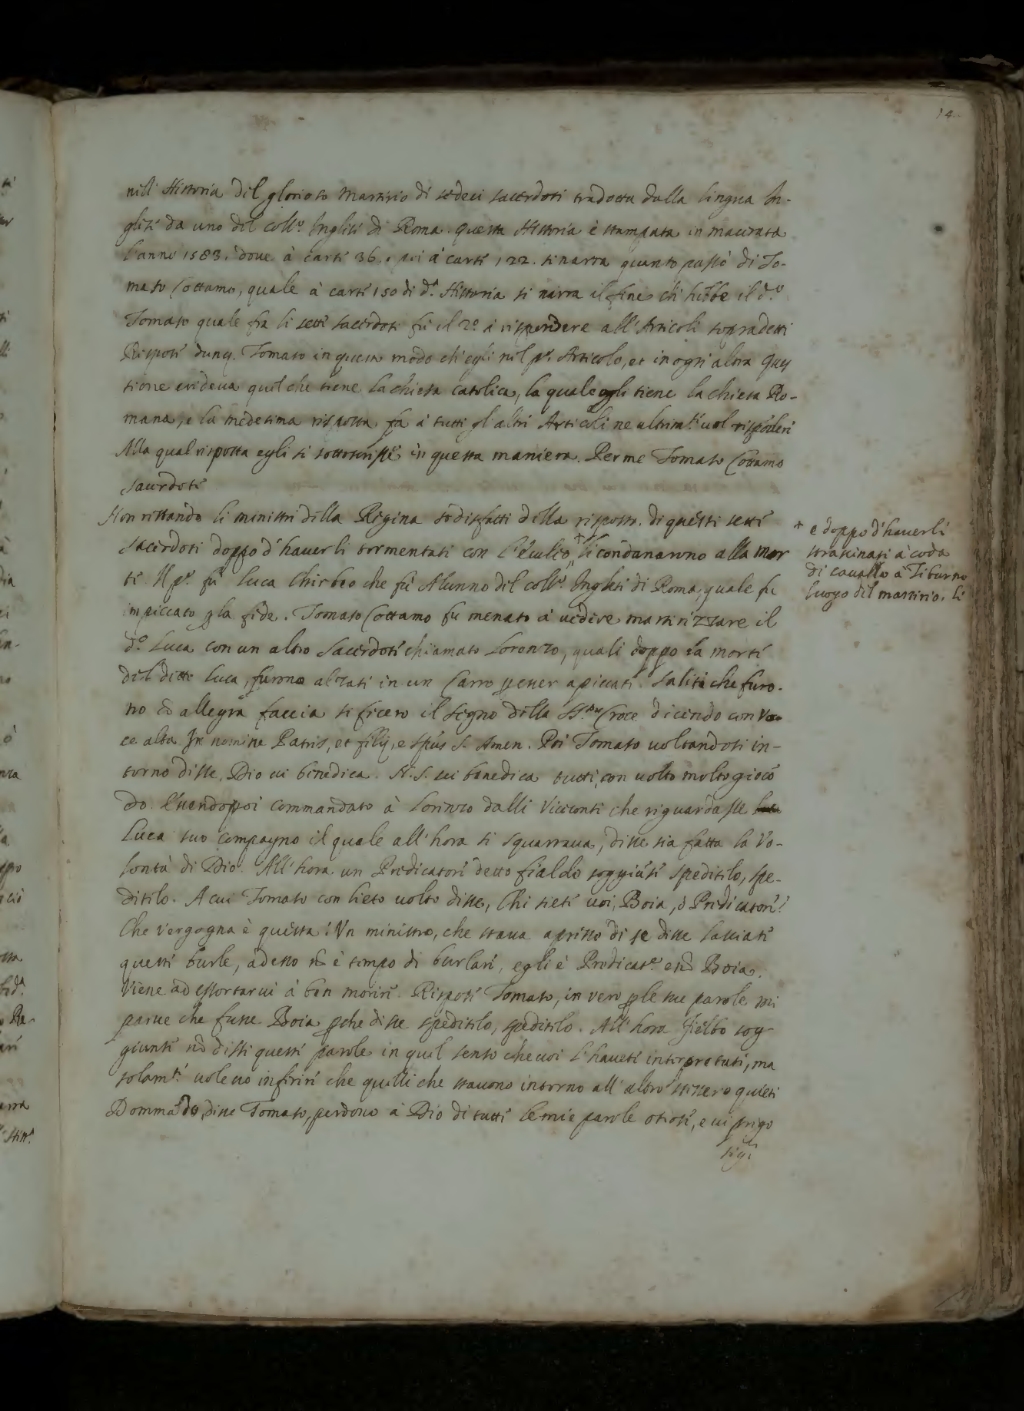 14.
nell' Historia del glorioso martirio di sedeci sacerdoti tradotta dalla lingua In-
glese da uno del coll.º Inglese di Roma. questa Historia è stampata in macerata
l'anno 1583. dove à carte 36. e poi à carte 122. si narra quanto passò di To-
maso Cottamo, quale à carte 150 di d.ª Historia si narra il fine ch' hebbe il d.º
Tomaso quale fra li sette sacerdoti fù il 2º à rispondere all' Articoli sopradetti
Rispose dunq. Tomaso in questo modo ch' egli nel pº. Articolo, et in ogn' altra Ques
tione credeva quel che tiene la chiesa catolica, la quale egli tiene la chiesa Ro-
mana, e la medesima risposta fa à tutti gl' altri Articoli ne altrim.te vol rispōder
Alla qual risposta egli si sottoscrisse in questa maniera. Per me Tomaso Cottamo
Sacerdote
Non restādo li ministri della Regina sodisfatti della risposta di questi sette
sacerdoti doppo d' haverli tormentati con l' èculeo + li condanarono alla mor
te. Il pº. fù Luca Chirbeo che fù Alunno del coll.º Inglese di Roma, quale fu
impiccato p la fede. Tomaso Cottamo fu menato à vedere martirizzare il
d.º Luca con un altro Sacerdote chiamato Lorenzo, quali doppo la morte
del ditto Luca, furono alzati in un Carro p esser apiccati. Saliti che furo-
no cō allegra faccia si ficero il segno della SS.ma Croce dicendo con vo-
ce alta In nomine Patris, et filij, e Spūs S. Amen. Poi Tomaso voltandosi in-
torno disse, Dio vi benedica. N. S. vi benedica tutti, con volto molto giocō
do. Havendo poi commandato à Lorenzo dalli Viceconti che riguardasse
Luca suo compagno il quale all' hora si squartava, disse sia fatta la Vo-
lontà di Dio. All' hora un Predicatore detto fialdo soggiūse speditelo, spe-
ditelo. A cui Tomaso con lieto volto disse, Chi siete voi, Boia, ò Predicatore?
Che vergogna è questa! Un ministro, che stava apresso di se disse lassiate
queste burle, adesso nō è tempo di burlare, egli è Predicat.e e nō Boia.
Viene ad essortarvi à ben morire. Rispose Tomaso, in vero p le sue parole mi
parve che fusse Boia pche disse speditelo, speditelo. All' hora fieldo sog
giunse nō dissi queste parole in quel senso che voi l' havete interpretate, ma
solam.te volevo inferire che quelli che stavono intorno all' altro stessero quieti
Dommādo, disse Tomaso, perdono à Dio di tutte le mie parole otiose, e vi prego
+ e doppo d' haverli
strascinati à coda
di cavallo a Tiburno
luogo del martirio, li